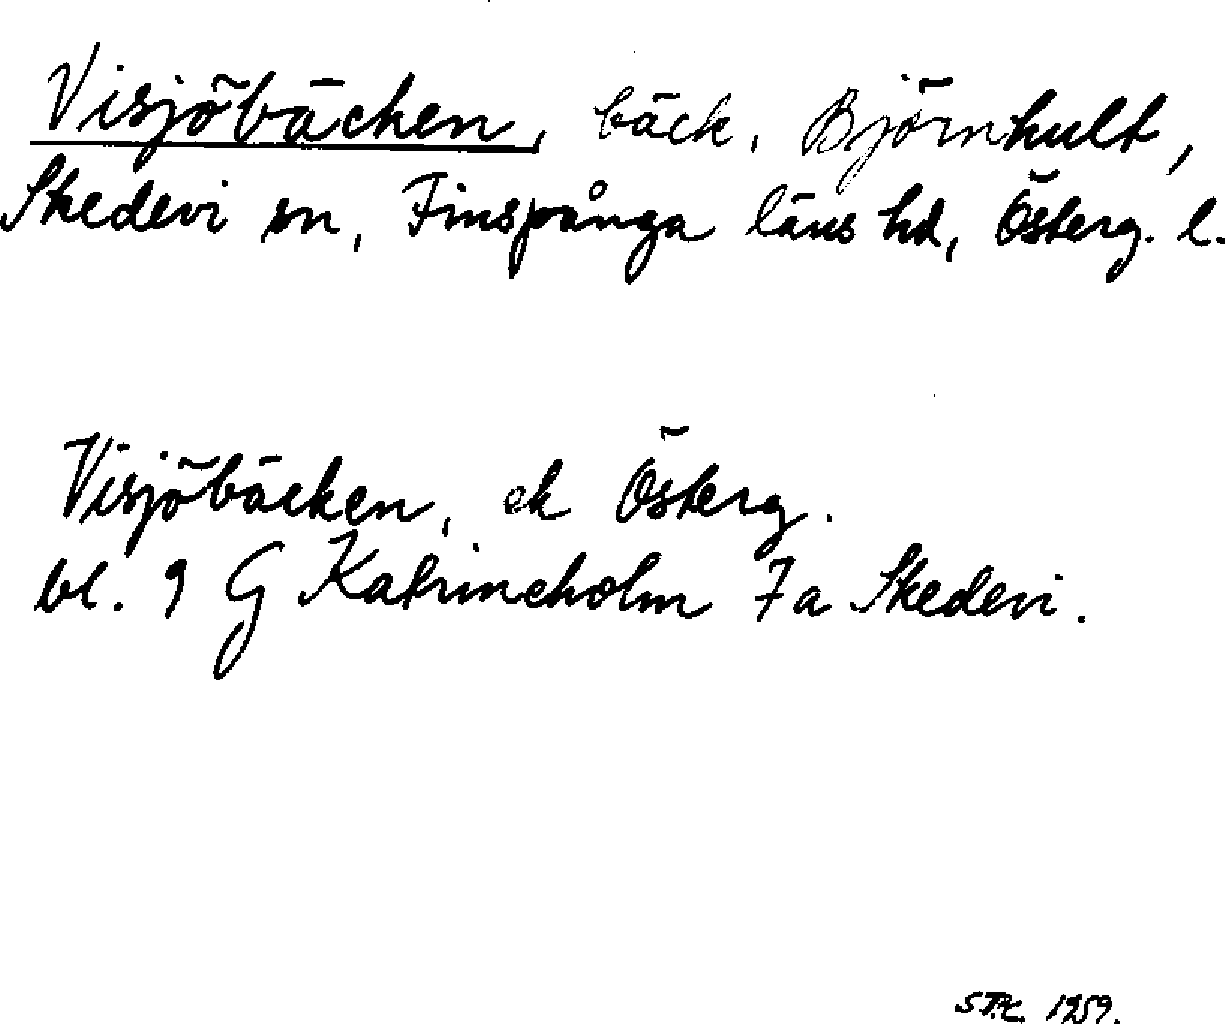 Visjöbäcken, bäck, Björnhult,
Skedevi sn, Finspånga läns hd, Österg. l.
Visjöbäcken, ek Österg.
bl. 9 G Katrineholm 7 a Skedevi.
1959.